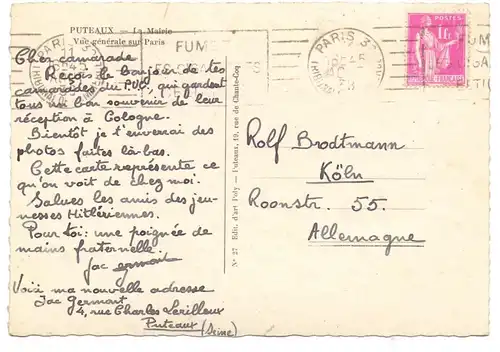 PUTEAUX. — La Mairie
Vue générale sur Paris
Cher camarade
Reçois le bonjour de tes
camarades du PUC, qui gardent
tous un bon souvenir de leur
réception à Cologne.
Bientôt je t'enverrai des
photos faites là-bas.
Cette carte représente ce
qu'on voit de chez moi.
Salues les amis des jeu-
nesses Hitlériennes.
Pour toi : une poignée de
mains fraternelle.
Jac Germont
Voici ma nouvelle adresse
Jac Germont
4, rue Charles Lorilleux
Puteaux (Seine)
N° 27 Edit. d'art Poly — Puteaux, 19, rue de Chante-Coq
PARIS
FUM
PARIS
POSTES
1F
Rolf Brodtmann
Köln
Roonstr. 55.
Allemagne